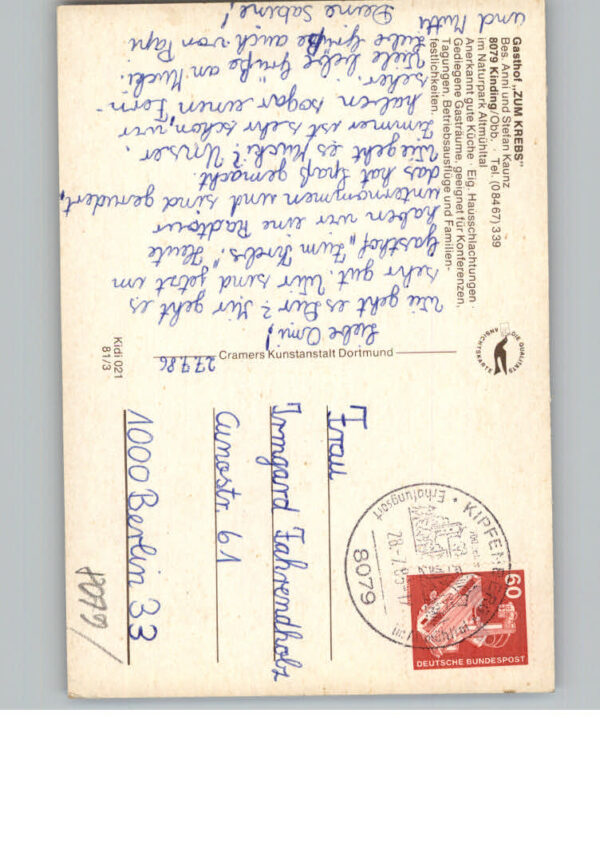 Gasthof „ZUM KREBS"
Bes. Anni und Stefan Kaunz
8079 Kinding/Obb. · Tel. (08467) 339
im Naturpark Altmühltal
Anerkannt gute Küche · Eig. Hausschlachtungen
Gediegene Gasträume, geeignet für Konferenzen,
Tagungen, Betriebsausflüge und Familien-
festlichkeiten.
27.7.86
Liebe Omi!
Wie geht es Dir? Mir geht es
sehr gut. Wir sind jetzt im
Gasthof „Zum Krebs". Heute
haben wir eine Radtour
unternommen und sind gerudert,
das hat Spaß gemacht.
Wie geht es Mucki? Unser
Zimmer ist sehr schön, wir
haben sogar einen Fern-
seher.
Viele liebe Grüße an Mucki.
Liebe Grüße auch von Papi
und Mutti
Deine Sabine!
Cramers Kunstanstalt Dortmund
Kidi 021
81/3
ANSICHTSKARTE
DIE QUALITÄTS
Frau
Irmgard Fahrendholz
Cunostr. 61
1000 Berlin 33
8079
KIPFENBERG
Erholungsort
8079
60
DEUTSCHE BUNDESPOST